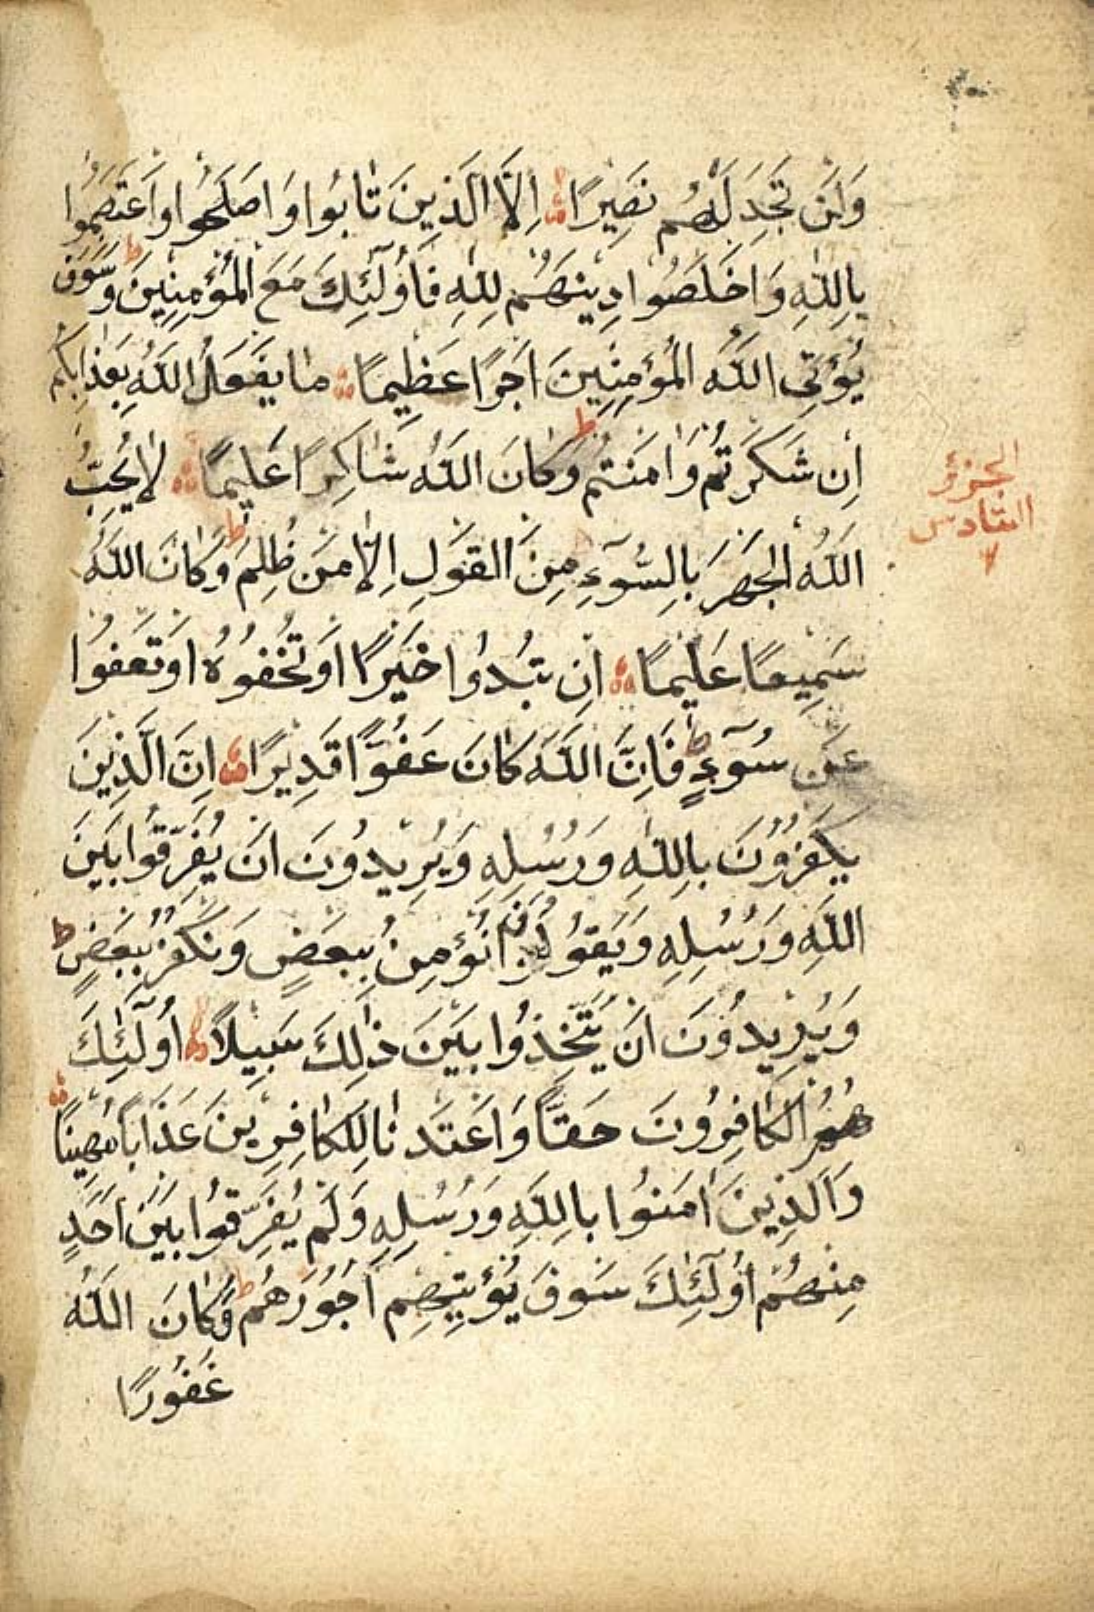 وَلَنْ تَجِدَ لَهُمْ نَصِيرًا اِلَّا الَّذِينَ تَابُوا وَاَصْلَحُوا وَاعْتَصَمُوا
بِاللّٰهِ وَاَخْلَصُوا دِينَهُمْ لِلّٰهِ فَاُولٰٓئِكَ مَعَ الْمُؤْمِنِينَ ط وَسَوْفَ
يُؤْتِي اللّٰهُ الْمُؤْمِنِينَ اَجْرًا عَظِيمًا مَا يَفْعَلُ اللّٰهُ بِعَذَابِكُمْ
اِنْ شَكَرْتُمْ وَاٰمَنْتُمْ ط وَكَانَ اللّٰهُ شَاكِرًا عَلِيمًا لَا يُحِبُّ
الجزؤ
السادس
اللّٰهُ الْجَهْرَ بِالسُّوٓءِ مِنَ الْقَوْلِ اِلَّا مَنْ ظُلِمَ ط وَكَانَ اللّٰهُ
سَمِيعًا عَلِيمًا اِنْ تُبْدُوا خَيْرًا اَوْ تُخْفُوهُ اَوْ تَعْفُوا
عَنْ سُوٓءٍ ط فَاِنَّ اللّٰهَ كَانَ عَفُوًّا قَدِيرًا اِنَّ الَّذِينَ
يَكْفُرُونَ بِاللّٰهِ وَرُسُلِهِ وَيُرِيدُونَ اَنْ يُفَرِّقُوا بَيْنَ
اللّٰهِ وَرُسُلِهِ وَيَقُولُونَ نُؤْمِنُ بِبَعْضٍ وَنَكْفُرُ بِبَعْضٍ ط
وَيُرِيدُونَ اَنْ يَتَّخِذُوا بَيْنَ ذٰلِكَ سَبِيلًا اُولٰٓئِكَ
هُمُ الْكَافِرُونَ حَقًّا وَاَعْتَدْنَا لِلْكَافِرِينَ عَذَابًا مُهِينًا
وَالَّذِينَ اٰمَنُوا بِاللّٰهِ وَرُسُلِهِ وَلَمْ يُفَرِّقُوا بَيْنَ اَحَدٍ
مِنْهُمْ اُولٰٓئِكَ سَوْفَ يُؤْتِيهِمْ اُجُورَهُمْ ط وَكَانَ اللّٰهُ
غَفُورًا